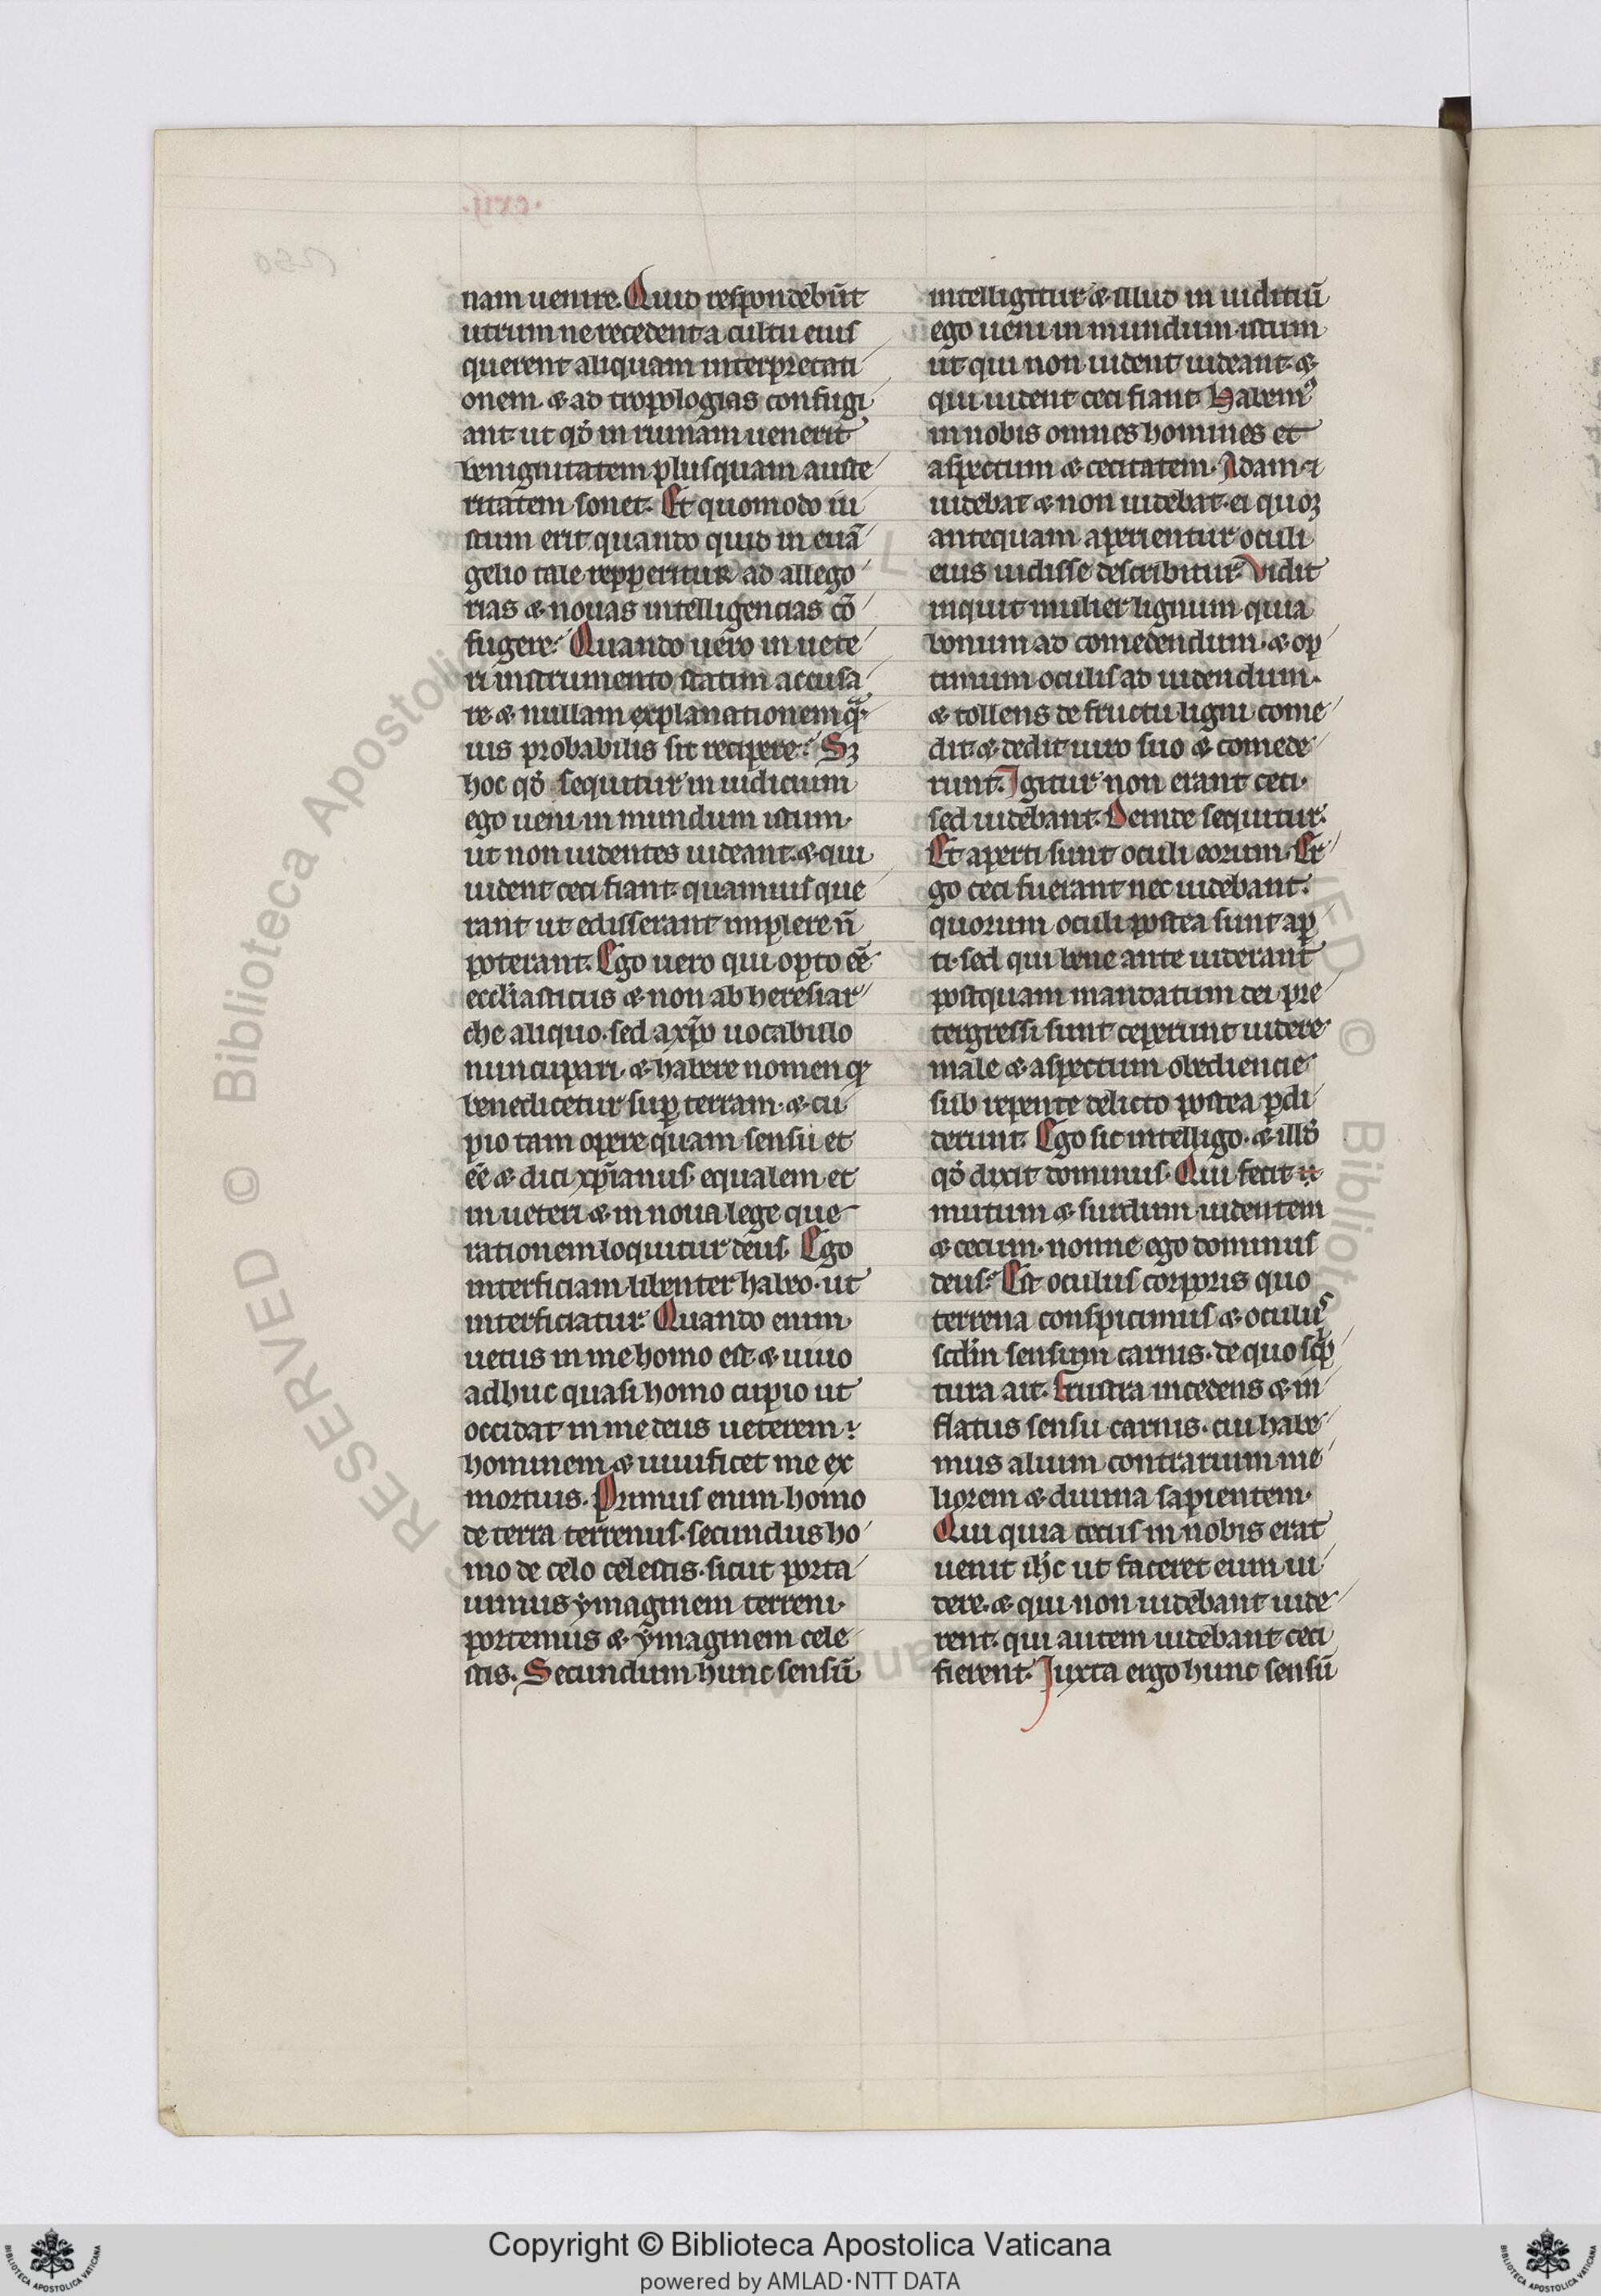 nam uenire. Quid respondebūt
utrum ne recedent a cultu eius
querent aliquam interpretati
onem. & ad tropologias confugi
ant ut qđ in ruinam uenerit
benignitatem plusquam auste
ritatem sonet. Et quomodo iu
stum erit quando quid in euā
gelio tale repperitur ad allego
rias & nouas intelligencias cō
fugere? Quando uero in uete
ri instrumento statim accusa
re. & nullam explanationem
uis probabilis sit recipere? Sꝫ
hoc qđ sequitur in iudicium
ego ueni in mundum istum.
ut non uidentes uideant. & qui
uident ceci fiant. quamuis que
rant ut edisserant implere n̄
poterant. Ego uero qui opto eē
eccl̄iasticus & non ab heresiar
che aliquo. sed a xp̄o uocabulo
nuncupari. & habere nomen
benedicetur suꝑ terram. & cu
pio tam opere quam sensu et
eē & dici xp̄ianus. equalem et
in ueteri & in noua lege que
rationem loquitur deus. Ego
interficiam. libenter habeo. ut
interficiatur. Quando enim
uetus in me homo est & uiuo
adhuc quasi homo cupio ut
occidat in me deus ueterem
hominem & uiuificet me ex
mortuis. Primus enim homo
de terra terrenus. secundus ho
mo de celo celestis. sicut porta
uimus ymaginem terreni.
portemus & ymaginem cele
stis. Secundum hunc sensū
intelligitur & illud in iuditiū
ego ueni in mundum istum
ut qui non uident uideant. &
qui uident ceci fiant. Habemꝰ
in nobis omnes homines et
aspectum & cecitatem. Adam ⁊
uidebat & non uidebat. ei quoꝫ
antequam aperientur oculi
eius uidisse describitur. Vidit
inquit mulier lignum quia
bonum ad comedendum. & op
timum oculis ad uidendum.
& tollens de fructu ligni come
dit. & dedit uiro suo & comede
runt. Igitur non erant ceci.
sed uidebant. Deinde sequitur.
Et aperti sunt oculi eorum. Er
go ceci fuerant nec uidebant.
quorum oculi postea sunt aꝑ
ti. sed qui bene ante uiderant
postquam mandatum dei pre
tergressi sunt ceperunt uidere
male & aspectum obediencie
sub repente delicto postea ꝑdi
derunt. Ego sic intelligo. & illđ
qđ dixit dominus. Qui fecit
mutum & surdum uidentem
& cecum. nonne ego dominus
deus? Est oculus corporis quo
terrena conspicimus & oculus
scd̄m sensum carnis. de quo sc̄p
tura ait. Frustra incedens & in
flatus sensu carnis. cui habe
mus alium contrarium me
liorem & diuina sapientem.
Qui quia cecus in nobis erat
uenit ih̄c ut faceret eum ui
dere. & qui non uidebant uide
rent. qui autem uidebant ceci
fierent. Juxta ergo hunc sensū
Copyright © Biblioteca Apostolica Vaticana
powered by AMLAD·NTT DATA